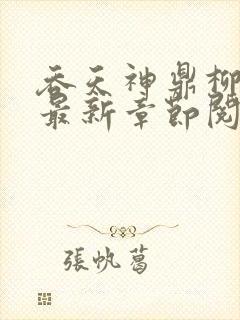 吞天神鼎柳
最新章節閱
張帆葛